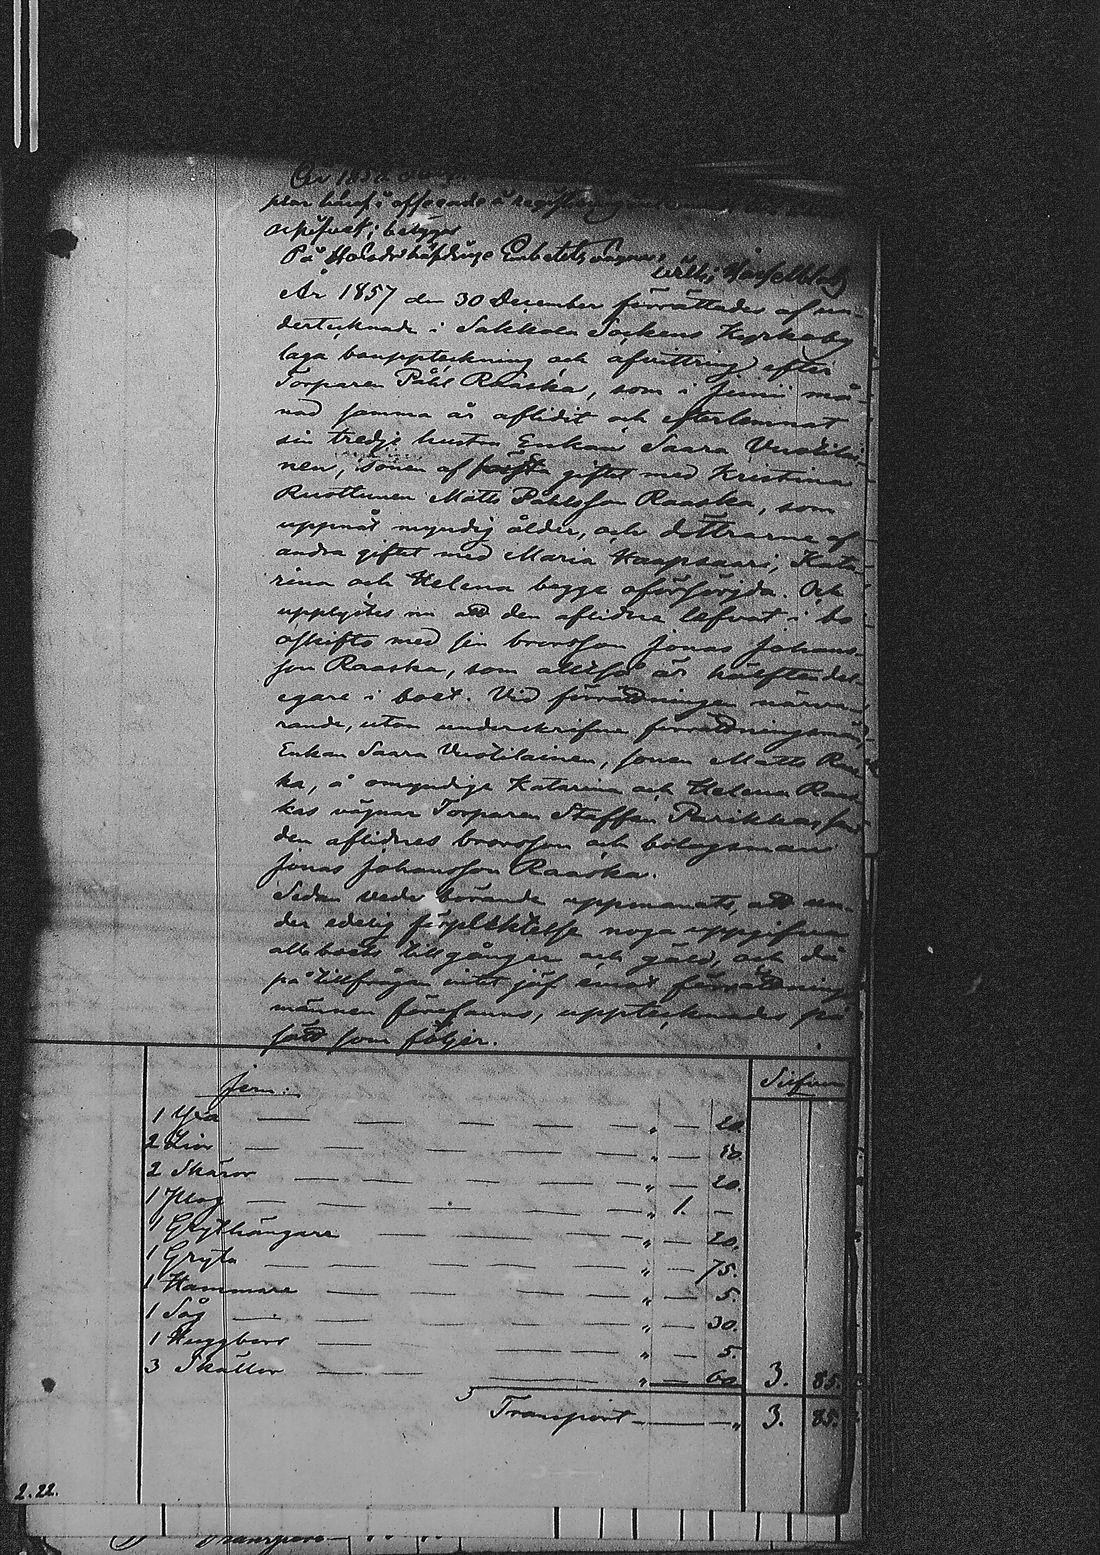 År 1858
plar häraf i offererade å registrering
arkifvet; betygar
På Häradshöfdinge Embetets vägnar:
Wilh; Hasselblatt
År 1857 den 30 December förrättades af un-
dertecknade i Sakkola Sockens Kyrkoby
laga bouppteckning och afvittring efter
Torparen Påhl Raaska, som i Junii må-
nad samma år aflidit och efterlemnat
sin tredje hustru Enkan Saara Vustilai-
nen, sonen af första giftet med Kristina
Ruottunen Matts Påhlsson Raaska, som
uppnåt myndig ålder, och döttrarne af
andra giftet med Maria Kaapsaari, Kata-
rina och Helena begge oförsörjda. Och
upplystes nu att den aflidne lefvat i bo
oskifto med sin brorsson Jonas Johans-
son Raaska, som altså är hälftendels
egare i boet. Vid förrättningen närva-
rande, utom underskrifne förrättningsmän,
Enkan Saara Vustilainen, sonen Matts Raas-
ka, å omyndige Katarina och Helena Raas-
kas vägnar Torparen Staffan Parikka samt
den aflidnes brorsson och bolagsman
Jonas Johansson Raaska.
Sedan vederbörande uppmanats, att un-
der edelig förpliktelse noga uppgifva
all boets tillgångar och gäld, och då
på tillfrågan intet jäf emot förrättnings
männen förefanns, upptecknades på
sätt som följer.
Silfver
Jern:
1 Yxa — — — — — " — 20.
2 Liar — — — — — " — 50.
2 Skäror — — — — " — 20.
1 Plog — — — — — " 1. —
1 Grythängare — — — — " — 20.
1 Gryta — — — — — " — 75.
1 Hammare — — — — " — 5.
1 Såg — — — — — " — 30.
1 Huggborr — — — — " — 5.
3 Skällor — — — — " — 60. 3. 85.
Transport — — " 3. 85.
2.22.
Transport